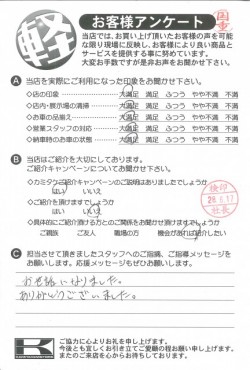 軽
お客様アンケート
当店では、お買い上げ頂いたお客様の声を可能
な限り現場に反映し、お客様により良い商品と
サービスを提供する事に努めています。
大変お手数ですが是非お声をお聞かせ下さい。
A 当店を実際にご利用になった印象をお聞かせ下さい。
◇店の印象 大満足 満足 ふつう やや不満 不満
◇店内・展示場の清掃 大満足 満足 ふつう やや不満 不満
◇お車の品揃え 大満足 満足 ふつう やや不満 不満
◇営業スタッフの対応 大満足 満足 ふつう やや不満 不満
◇納車時のお車の状態 大満足 満足 ふつう やや不満 不満
B 当店はご紹介を大切にしております。
ご紹介キャンペーンについてお聞かせ下さい。
◇カミタケご紹介キャンペーンのご説明はありましたでしょうか
はい いいえ
◇ご紹介を頂けますでしょうか
はい いいえ
◇具体的にご紹介頂ける方とのご関係をお聞かせ願えますでしょうか
ご親族 ご友人 職場の方 機会があれば紹介したい
検印
28.8.17
社長
C 担当させて頂きましたスタッフへのご指摘、ご指導メッセージを
お願いします。応援メッセージもぜひお願いします。
お世話になりました。
ありがとうございました。
K
ご協力に心よりお礼を申し上げます。
今後とも宜しくお引き立てご愛顧の程お願い申し上げます。
またのご来店を心からお待ちしております。